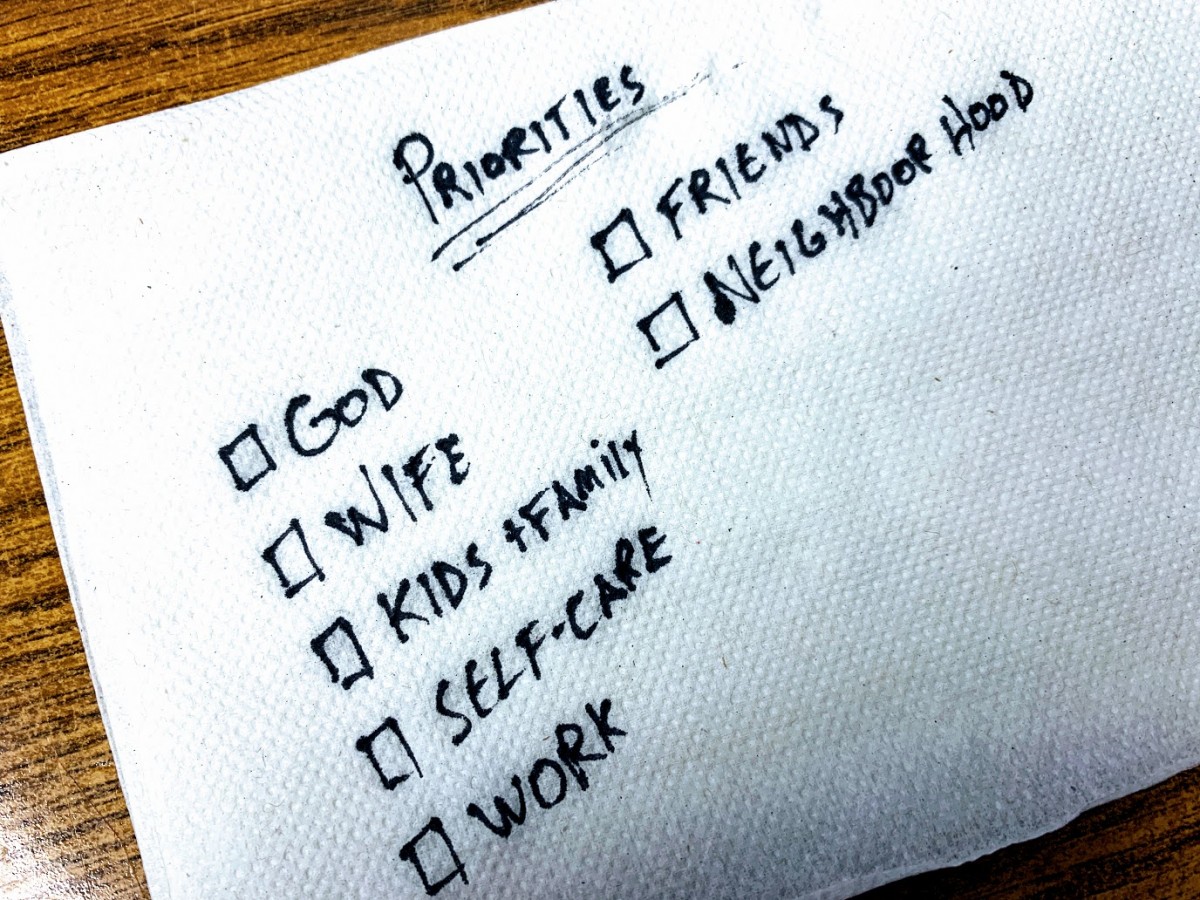 PRIORITIES
☐ GOD
☐ WIFE
☐ KIDS + FAMily
☐ SELF-CARE
☐ WORK
☐ FRIENDS
☐ NEIGHBOOR HOOD